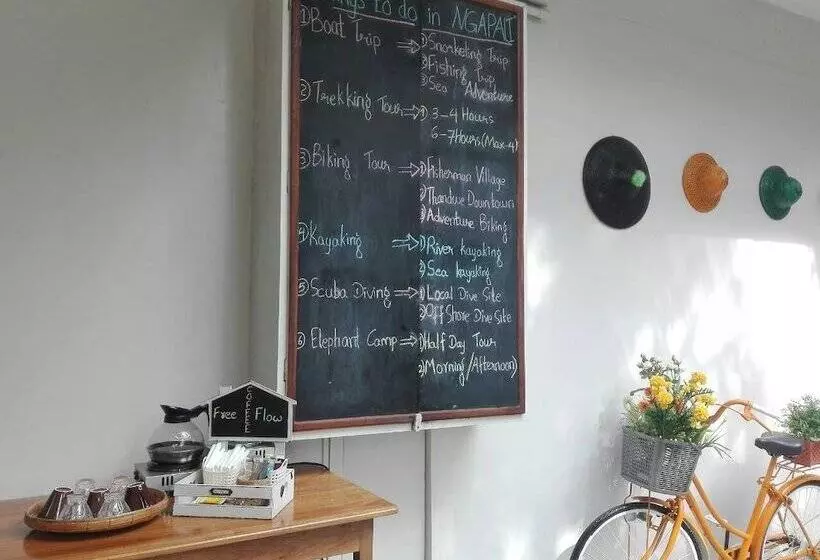 to do in NGAPALI
① Boat Trip ⇒ ① Snorkeling Trip
② Fishing Trip
③ Sea Adventure
② Trekking Tour ⇒ ① 3-4 Hours
6-7 Hours (Max-4)
③ Biking Tour ⇒ ① Fisherman Village
② Thandwe Downtown
③ Adventure Biking
④ Kayaking ⇒ ① River kayaking
② Sea kayaking
⑤ Scuba Diving ⇒ ① Local Dive Site
② Off Shore Dive Site
⑥ Elephant Camp ⇒ ① Half Day Tour
② Morning / Afternoon)
COFFEE
Free Flow